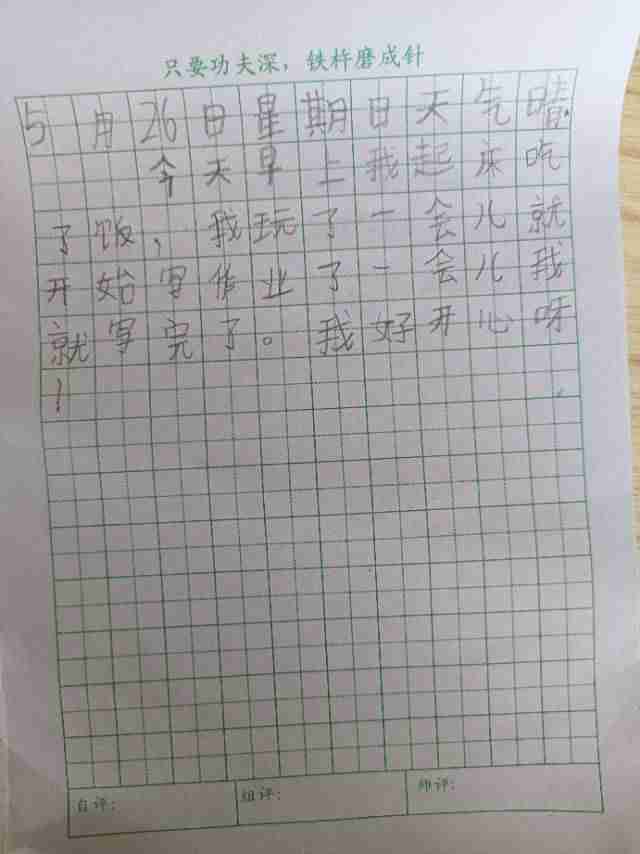 只要功夫深，铁杵磨成针
5月26日星期日天气晴
今天早上我起床吃
了饭，我玩了一会儿就
开始写作业了一会儿我
就写完了。我好开心呀
！
自评：
组评：
师评：